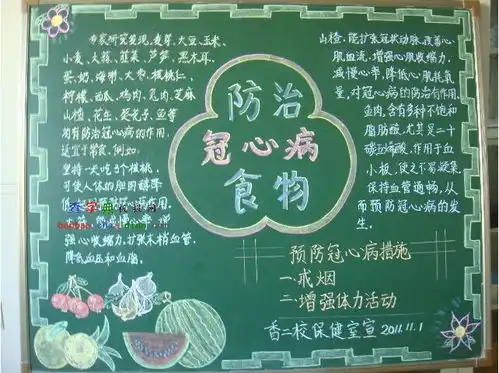 专家研究发现，麦芽、大豆、玉米、
小麦、大蒜、韭菜、芦笋、黑木耳、
蛋、奶、海蜊、大枣、核桃仁、
柠檬、西瓜、鸡肉、兔肉、芝麻
山楂、花生、葵花子、鱼等
均有防治冠心病的作用，
适宜于常食。例如：
坚持一天吃3个核桃，
可使人体的胆固醇降
强心收缩力，扩张末梢血管，
降低血压和血脂。
防治
冠心病
食物
山楂：能扩张冠状动脉，改善心
肌血流，增强心肌收缩力，
减慢心率，降低心肌耗氧
量，对冠心病的防治有作用。
鱼肉，含有多种不饱和
脂肪酸，尤其是二十
碳五烯酸，作用于血
小板，使之不易凝集，
保持血管通畅，从
而预防冠心病的发
生。
预防冠心病措施
一戒烟
二增强体力活动
香二校保健室宣 2011.11.1